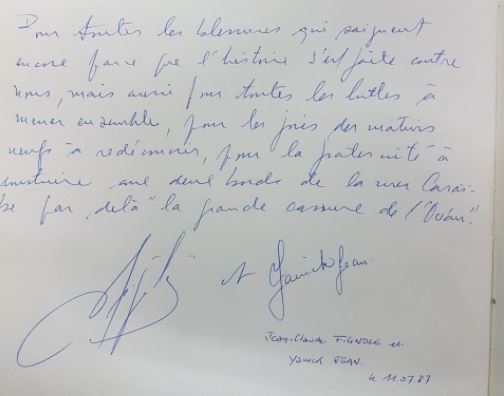 Pour toutes les blessures qui saignent
encore parce que l'histoire s'est faite contre
nous, mais aussi pour toutes les luttes à
mener ensemble, pour les joies des matins
neufs à redécouvrir, pour la fraternité à
construire aux deux bords de la mer Caraï-
be par delà "la grande cassure de l'Océan".
et Yanick Jean
Jean-Claude FIGNOLE et
Yanick JEAN.
le 11.07.87